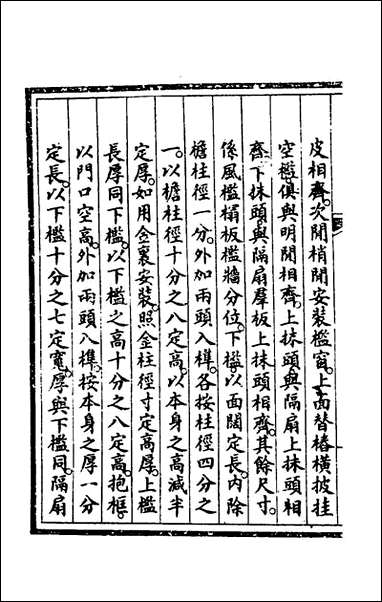 皮相齊。次間梢間安裝檻窗。上面替樁橫披挂
空檻。俱與明間相齊。上抹頭與隔扇上抹頭相
齊。下抹頭與隔扇羣板上抹頭相齊。其餘尺寸。
係風檻榻板檻牆分位。下檻。以面闊定長。內除
檐柱徑一分。外加兩頭入榫。各按柱徑四分之
一。以檐柱徑十分之八定高。以本身之高減半
定厚。如用金裏安裝。照金柱徑寸定高厚。上檻
長厚同下檻。以下檻之高十分之八定高。抱框。
以門口空高。外加兩頭八榫。按本身之厚一分
定長。以下檻十分之七定寬。厚與下檻同。隔扇